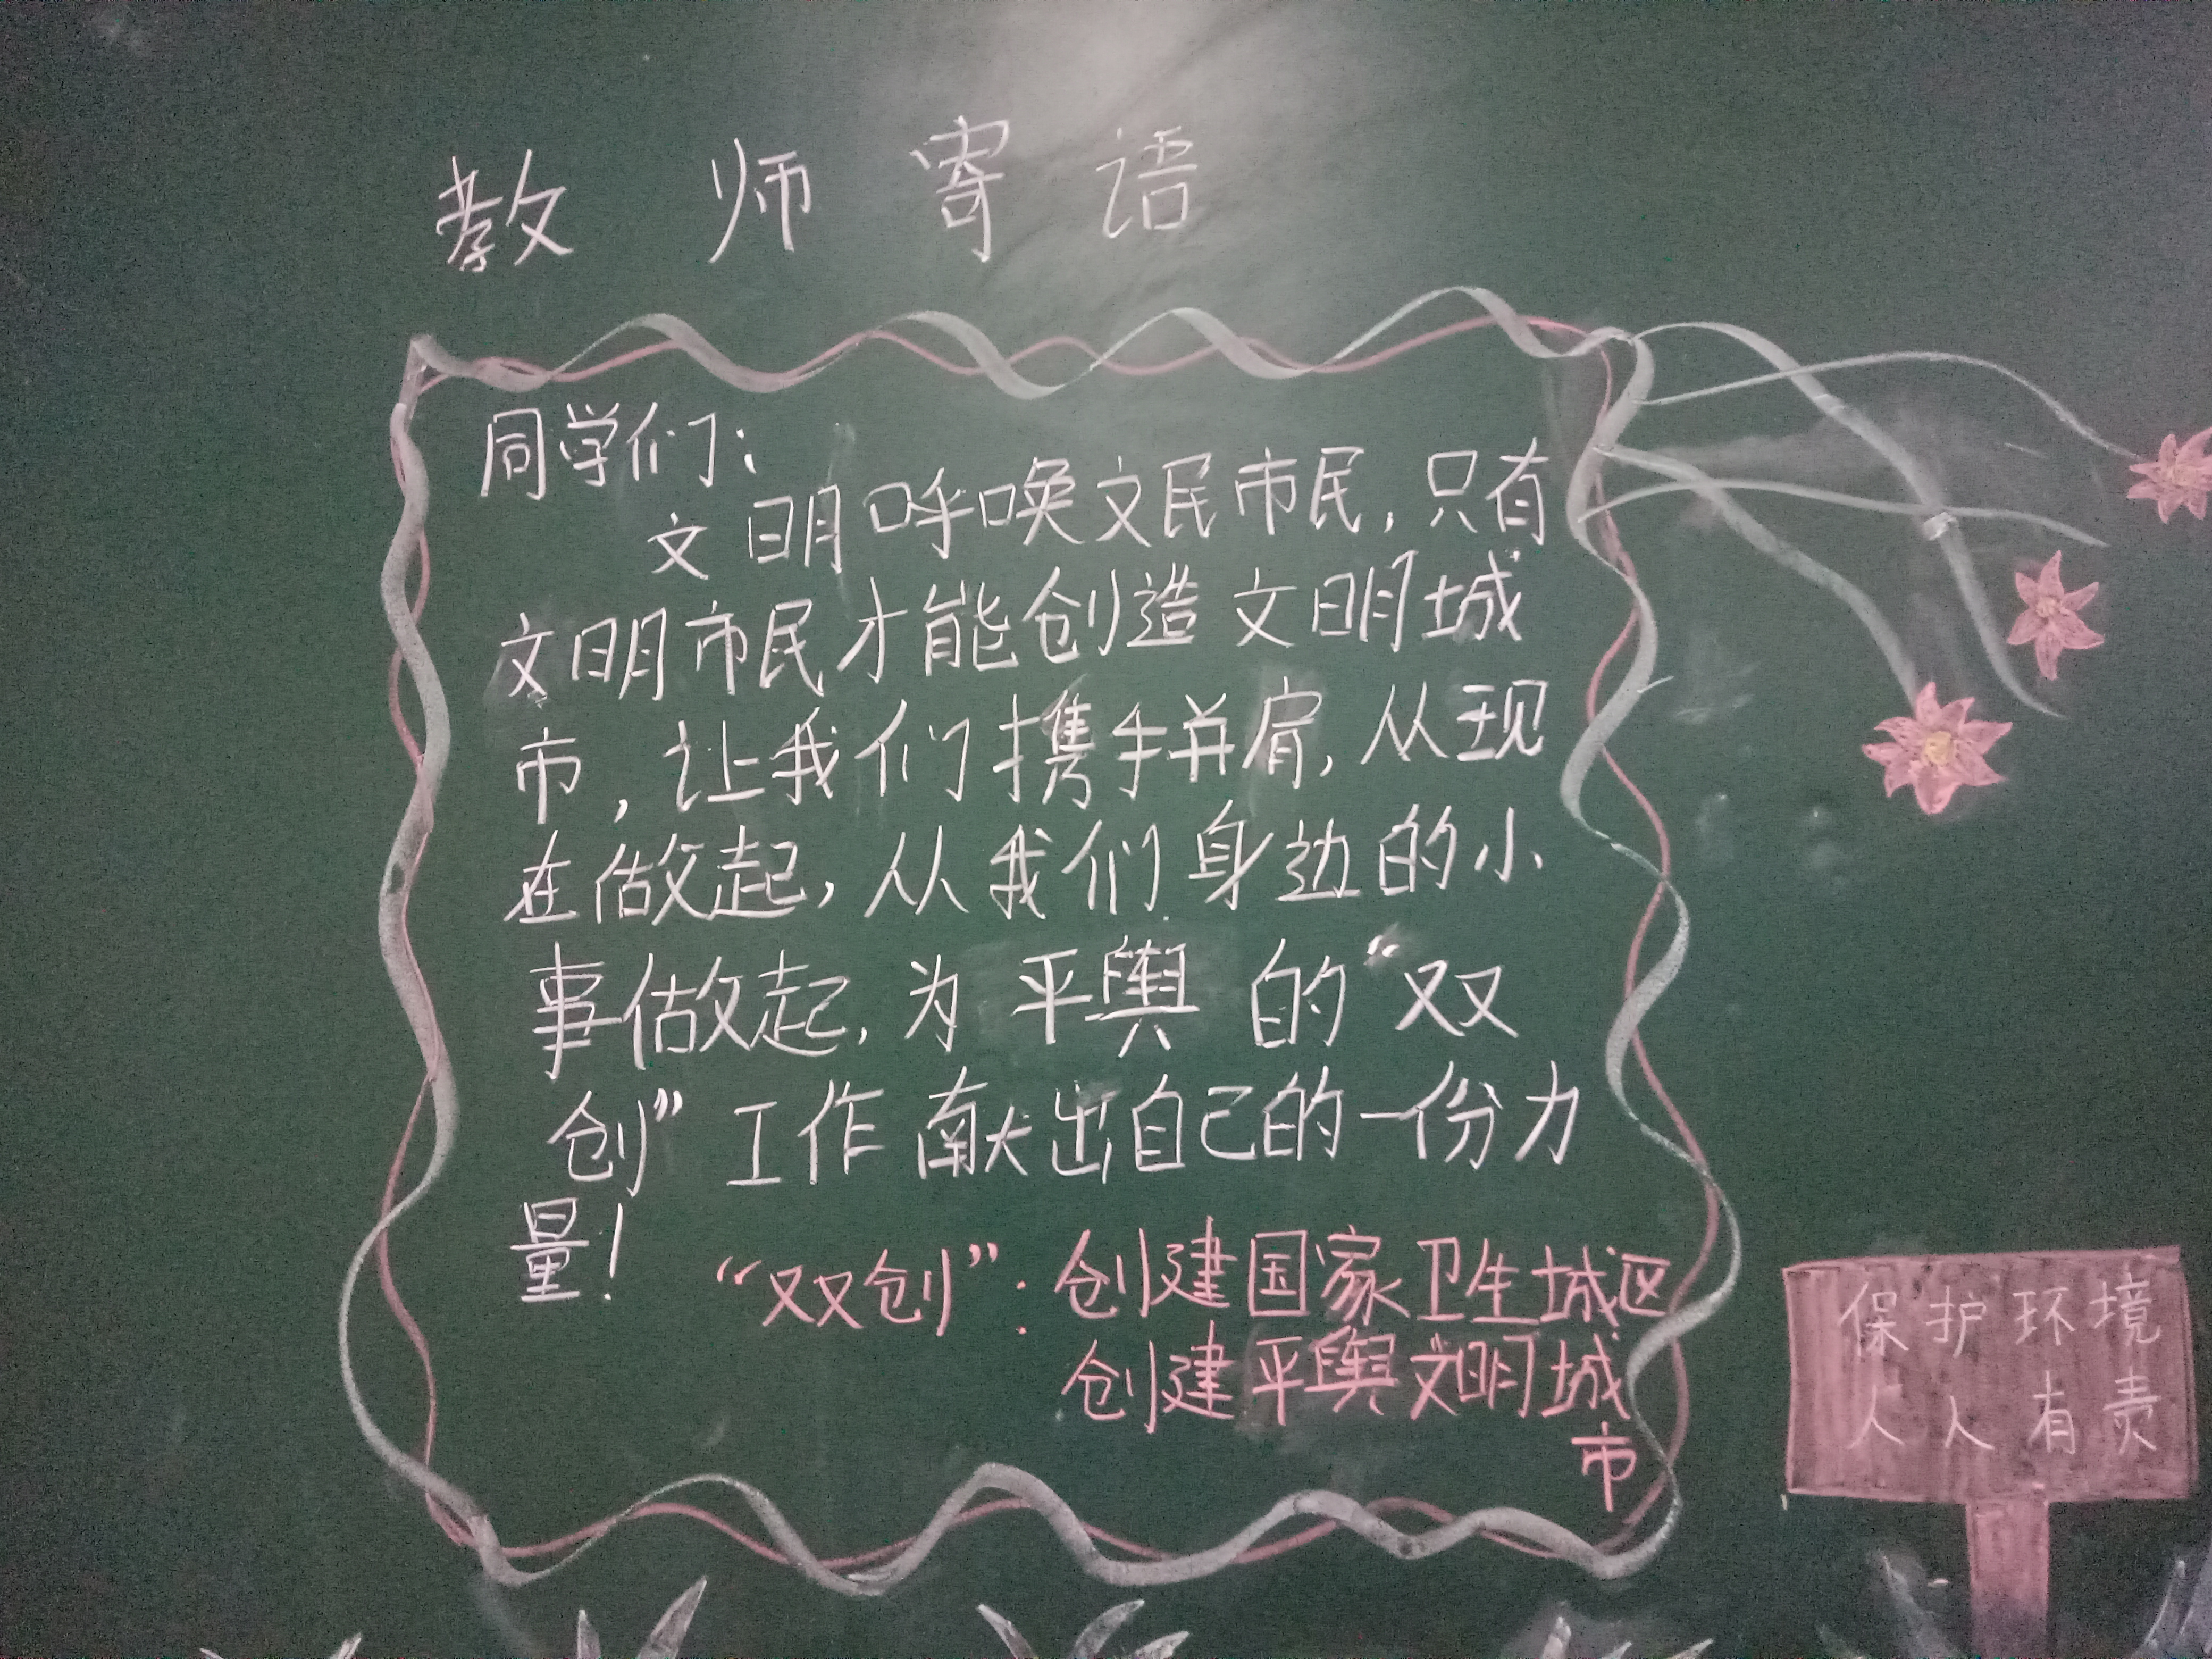 教师寄语
同学们：
文明呼唤文民市民，只有
文明市民才能创造文明城
市，让我们携手并肩，从现
在做起，从我们身边的小
事做起，为平舆的“双
创”工作献出自己的一份力
量！
“双创”：创建国家卫生城区
创建平舆文明城
市
保护环境
人人有责